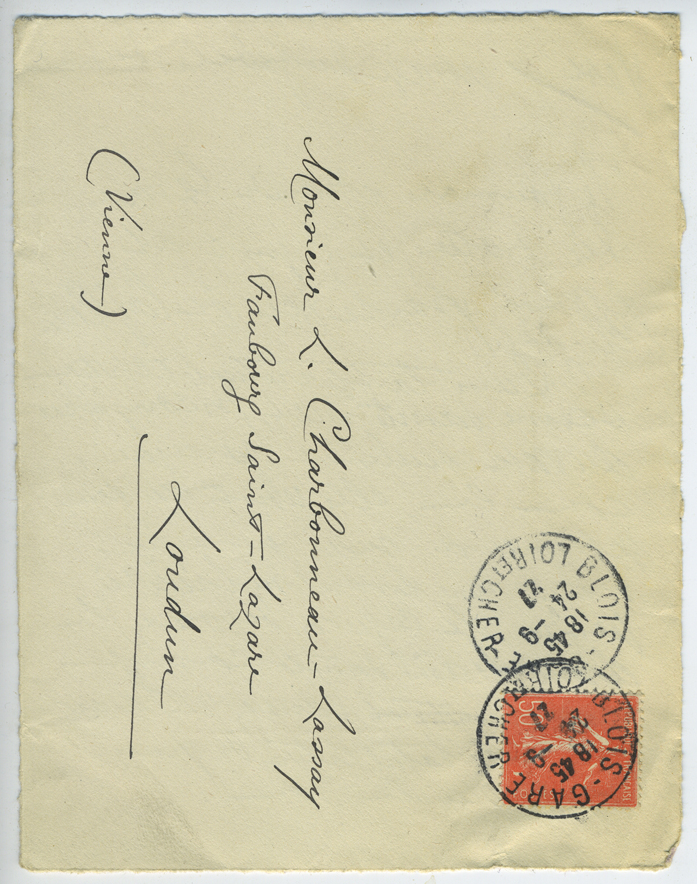 Monsieur L. Charbonneau-Lassay
Faubourg Saint-Lazare
Loudun
(Vienne)
BLOIS-GARE
LOIR ET CHER
18 45
24 -9
27
BLOIS-GARE
LOIR ET CHER
18 45
24 -9
27
50